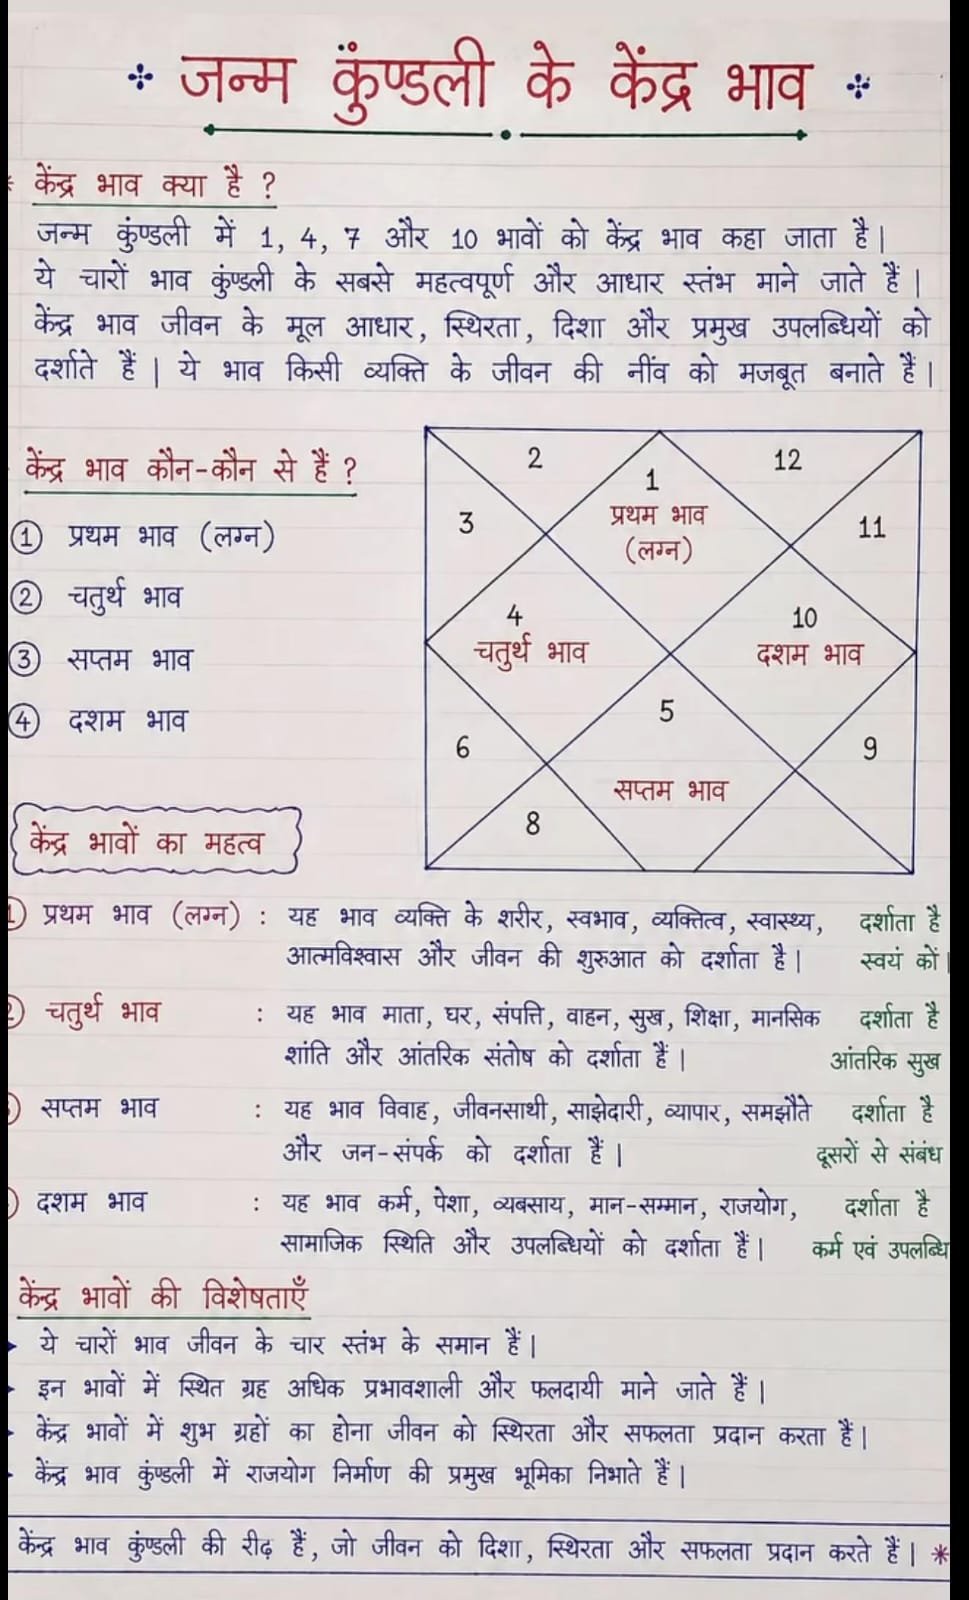 जन्म कुंण्डली के केंद्र भाव
केंद्र भाव क्या है ?
जन्म कुंण्डली में 1, 4, 7 और 10 भावों को केंद्र भाव कहा जाता है|
ये चारों भाव कुंण्डली के सबसे महत्वपूर्ण और आधार स्तंभ माने जाते हैं |
केंद्र भाव जीवन के मूल आधार, स्थिरता, दिशा और प्रमुख उपलब्धियों को
दर्शाते हैं | ये भाव किसी व्यक्ति के जीवन की नींव को मजबूत बनाते हैं|
केंद्र भाव कौन-कौन से हैं ?
① प्रथम भाव (लग्न)
② चतुर्थ भाव
③ सप्तम भाव
④ दशम भाव
2
12
1
3
प्रथम भाव
11
(लग्न)
4
10
चतुर्थ भाव
दशम भाव
5
6
9
सप्तम भाव
8
केंद्र भावों का महत्व
① प्रथम भाव (लग्न) : यह भाव व्यक्ति के शरीर, स्वभाव, व्यक्तित्व, स्वास्थ्य, दर्शाता है
आत्मविश्वास और जीवन की शुरुआत को दर्शाता है| स्वयं कों|
② चतुर्थ भाव : यह भाव माता, घर, संपत्ति, वाहन, सुख, शिक्षा, मानसिक दर्शाता है
शांति और आंतरिक संतोष को दर्शाता हैं | आंतरिक सुख
सप्तम भाव : यह भाव विवाह, जीवनसाथी, साझेदारी, व्यापार, समझौते दर्शाता है
और जन-संपर्क को दर्शाता हैं | दूसरों से संबंध
दशम भाव : यह भाव कर्म, पेशा, व्यबसाय, मान-सम्मान, राजयोग, दर्शाता है
सामाजिक स्थिति और उपलब्धियों को दर्शाता हैं| कर्म एवं उपलब्धि
केंन्द्र भावों की विशेषताएँ
ये चारों भाव जीवन के चार स्तंभ के समान हैं|
इन भावों में स्थित ग्रह अधिक प्रभावशाली और फलदायी माने जाते हैं |
केंन्द्र भावों में शुभ ग्रहों का होना जीवन को स्थिरता और सफलता प्रदान करता हैं|
केंन्द्र भाव कुंण्डली में राजयोग निर्माण की प्रमुख भूमिका निभाते हैं |
केंन्द्र भाव कुंण्डली की रीढ़ हैं, जो जीवन को दिशा, स्थिरता और सफलता प्रदान करते हैं | *